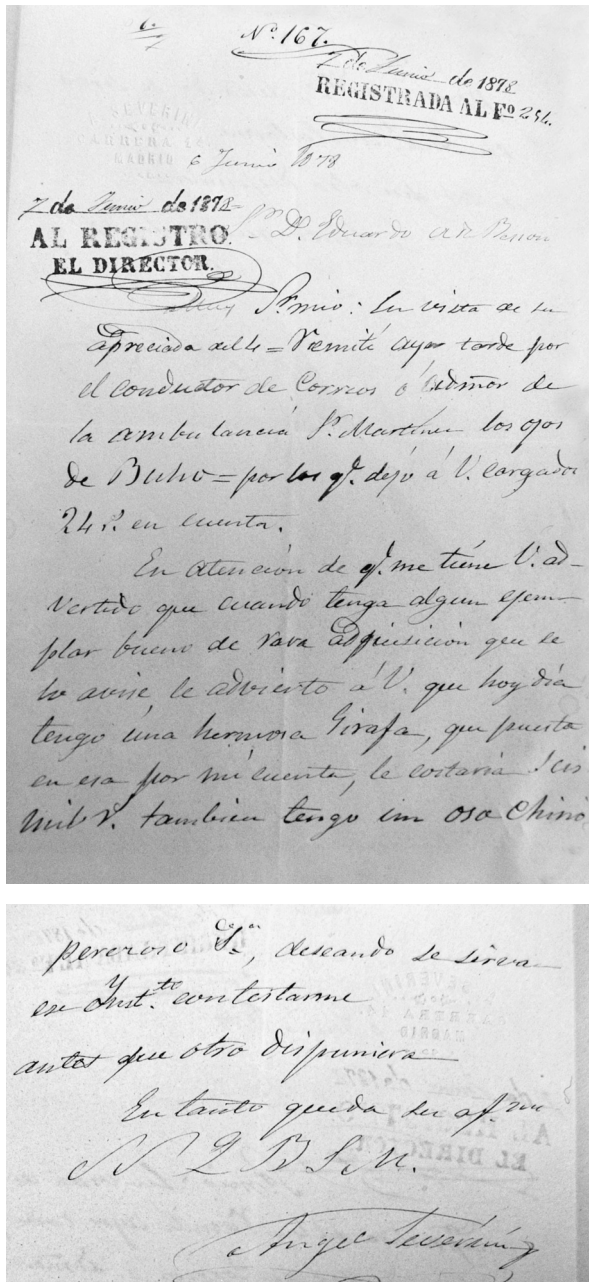 Nº 167.
7 de Junio de 1878
REGISTRADA AL Fº 254.
SEVERINI
CARRERA 14.
MADRID
6 Junio 1878
7 de Junio de 1878
AL REGISTRO.
EL DIRECTOR.
Sr. D. Eduardo A de Besson
Muy Sr. mio: En vista de su
apreciada del 4 = Remití ayer tarde por
el conductor de Correos ó Admor de
la ambulancia Sr. Martinez los ojos
de Buho = por los q.e dejó á V. cargados
24 r.s en cuenta.
En atención de q.e me tiene V. ad-
vertido que cuando tenga algun ejem-
plar bueno de rara adquisición que se
lo avise, le advierto á V. que hoy día
tengo úna hermosa Girafa, que puesta
en esa por mi cuenta, le costaria seis
mil r.s tambien tengo un oso Chino
perezoso &.a, deseando se sirva
ese Inst.to contestarme
antes que otro dispusiera
En tanto queda su af.mo
S S Q B S M.
Angel Severini